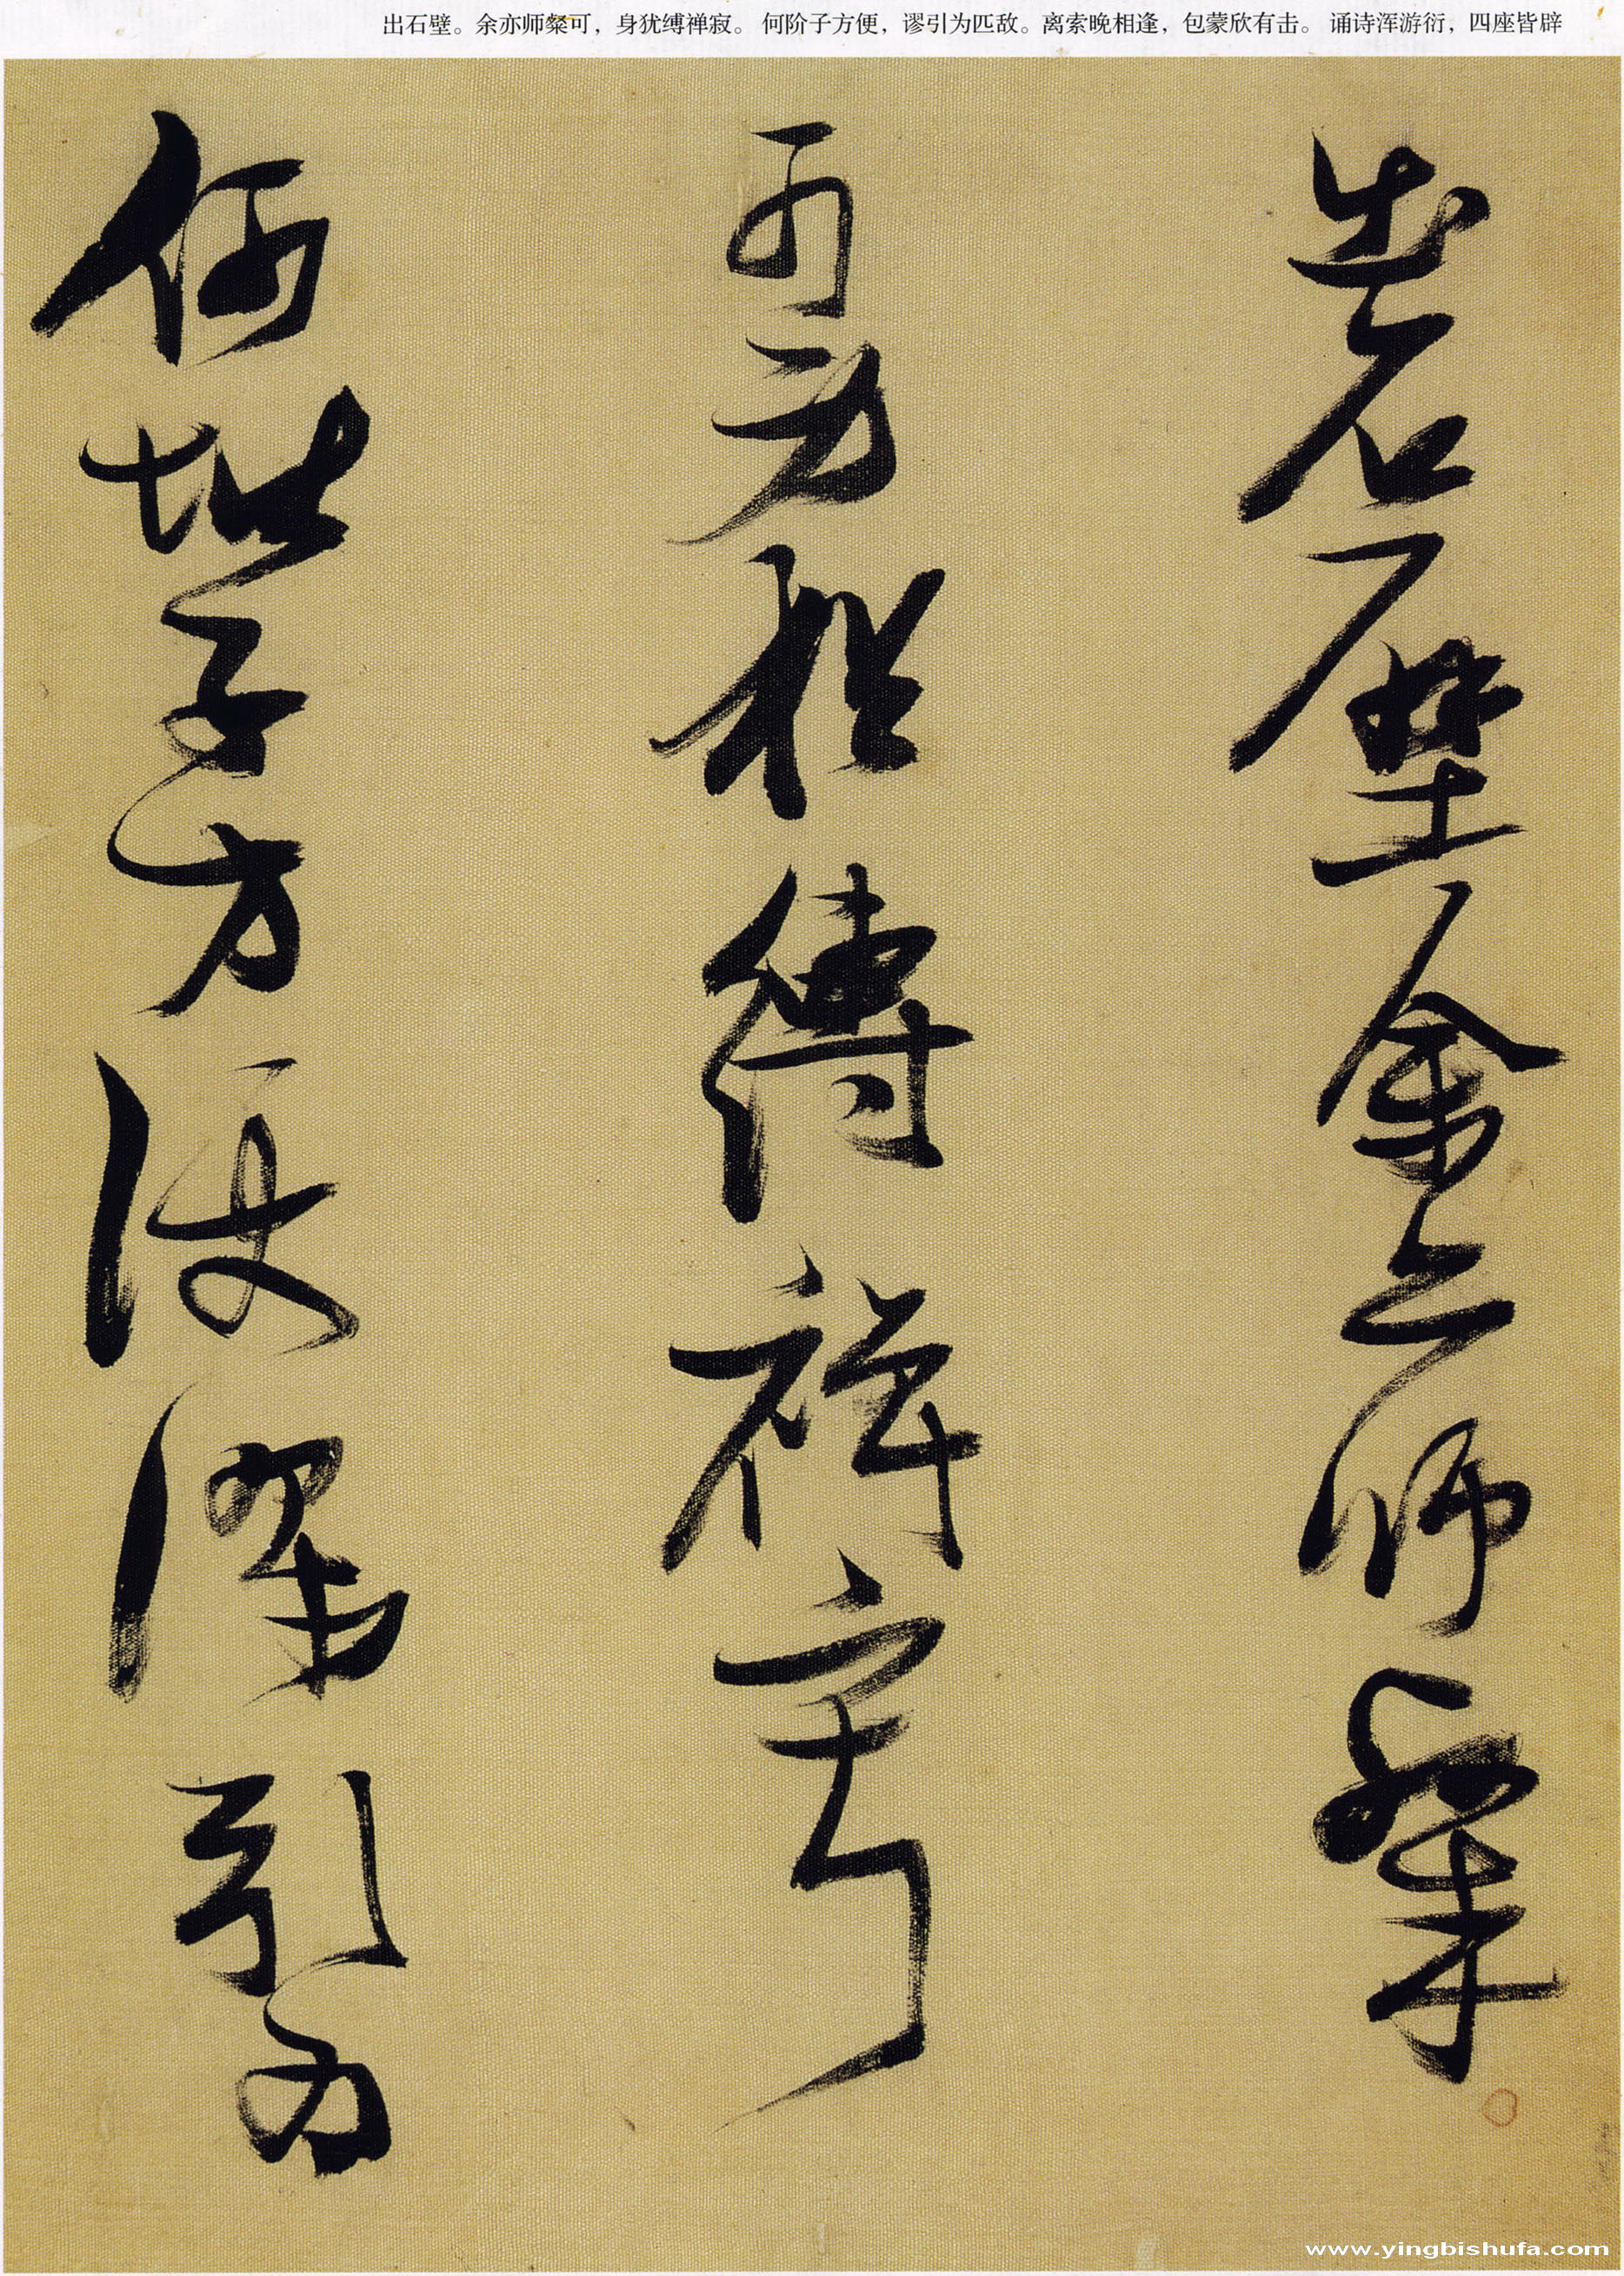 出石壁。余亦师粲可，身犹缚禅寂。 何阶子方便，谬引为匹敌。离索晚相逢，包蒙欣有击。 诵诗浑游衍，四座皆辟
出石壁余亦师粲
可身猶縛禪寂
何階子方便謬引為
www.yingbishufa.com